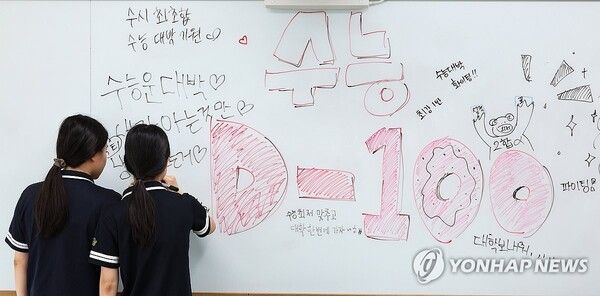 수시 최초합
수능 대박 기원
수능
수능대박
화이팅!!
수능운 대박
아는것만
최강 1반
D-100
파이팅
수능최저 맞추고
대학 한번에 가자
대학보내줘
연합뉴스
YONHAP NEWS
연합뉴스
YONHAPNEWS